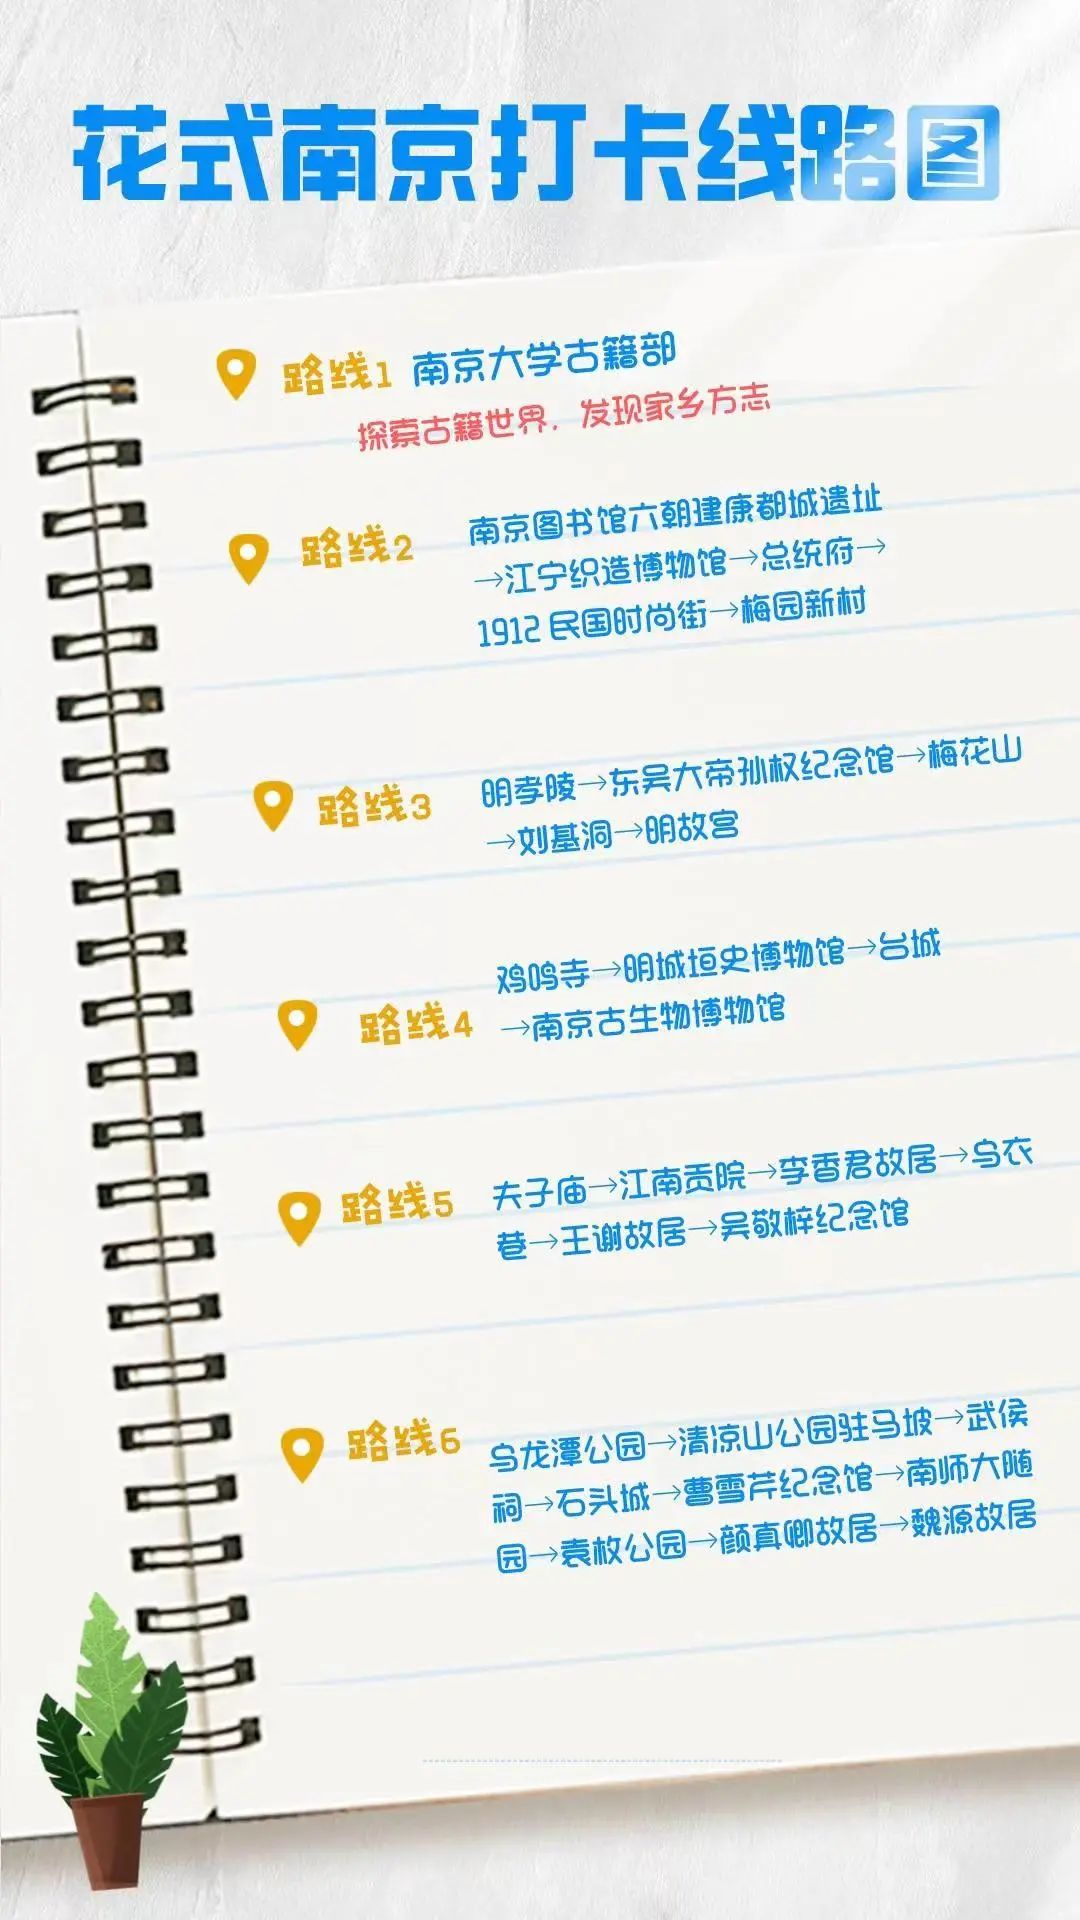 花式南京打卡线路图
路线1 南京大学古籍部
探索古籍世界，发现家乡方志
路线2
南京图书馆六朝建康都城遗址
→江宁织造博物馆→总统府→
1912民国时尚街→梅园新村
路线3
明孝陵→东吴大帝孙权纪念馆→梅花山
→刘基洞→明故宫
路线4
鸡鸣寺→明城垣史博物馆→台城
→南京古生物博物馆
路线5
夫子庙→江南贡院→李香君故居→乌衣
巷→王谢故居→吴敬梓纪念馆
路线6
乌龙潭公园→清凉山公园驻马坡→武侯
祠→石头城→曹雪芹纪念馆→南师大随
园→袁枚公园→颜真卿故居→魏源故居